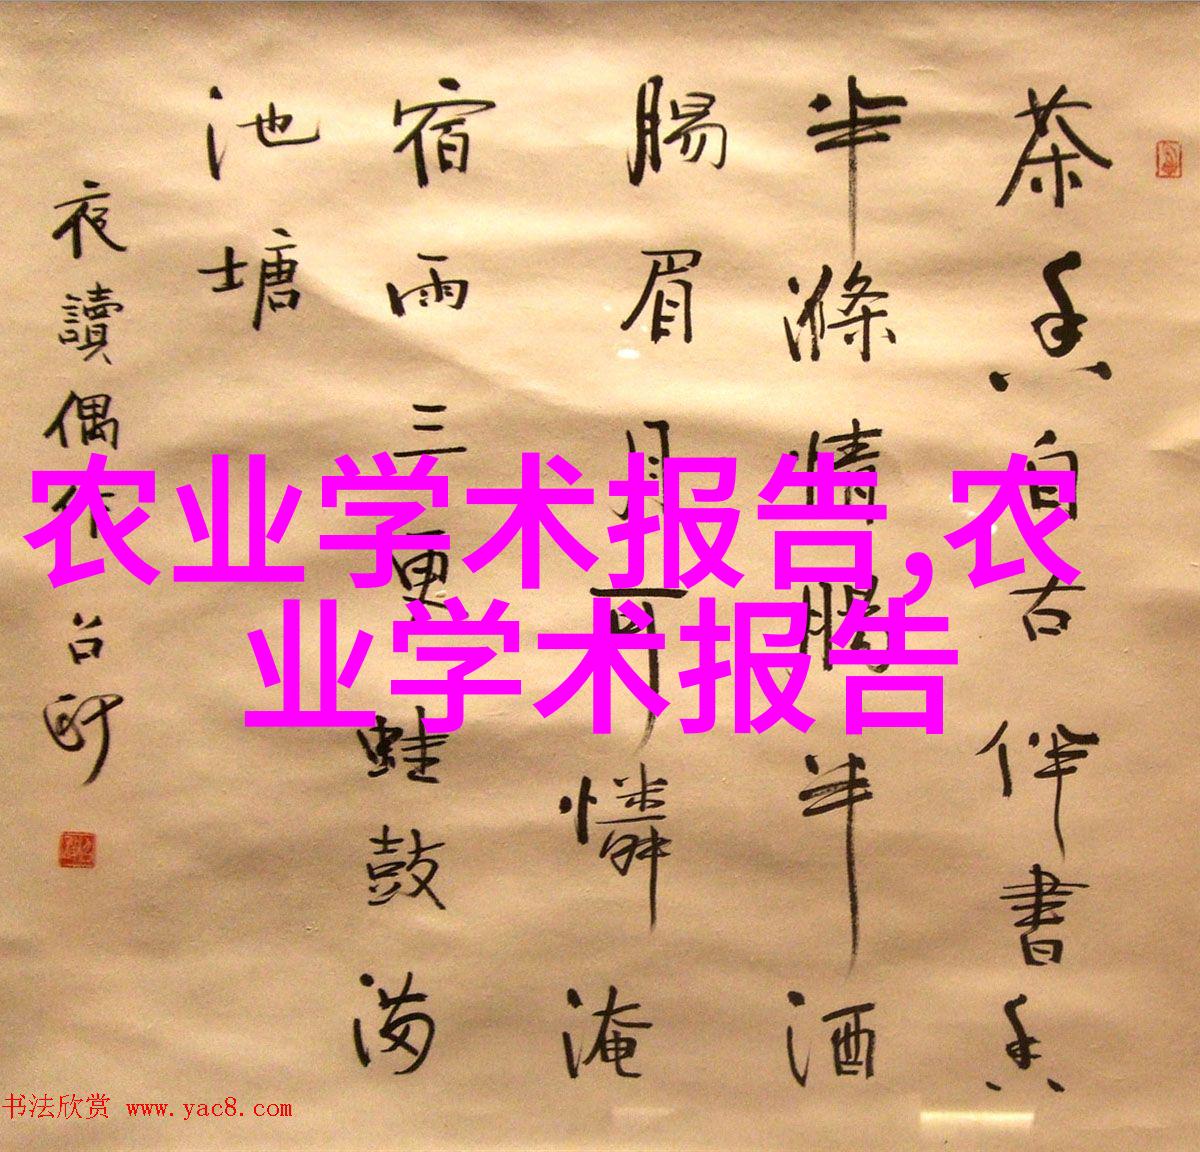 茶香自古伴書香
半滌情腸半酒
腸眉月可憐淹
宿雨三更蛙鼓满
池塘
夜讀偶作
农业学术报告,农
业学术报告
书法欣赏 www.yac8.com